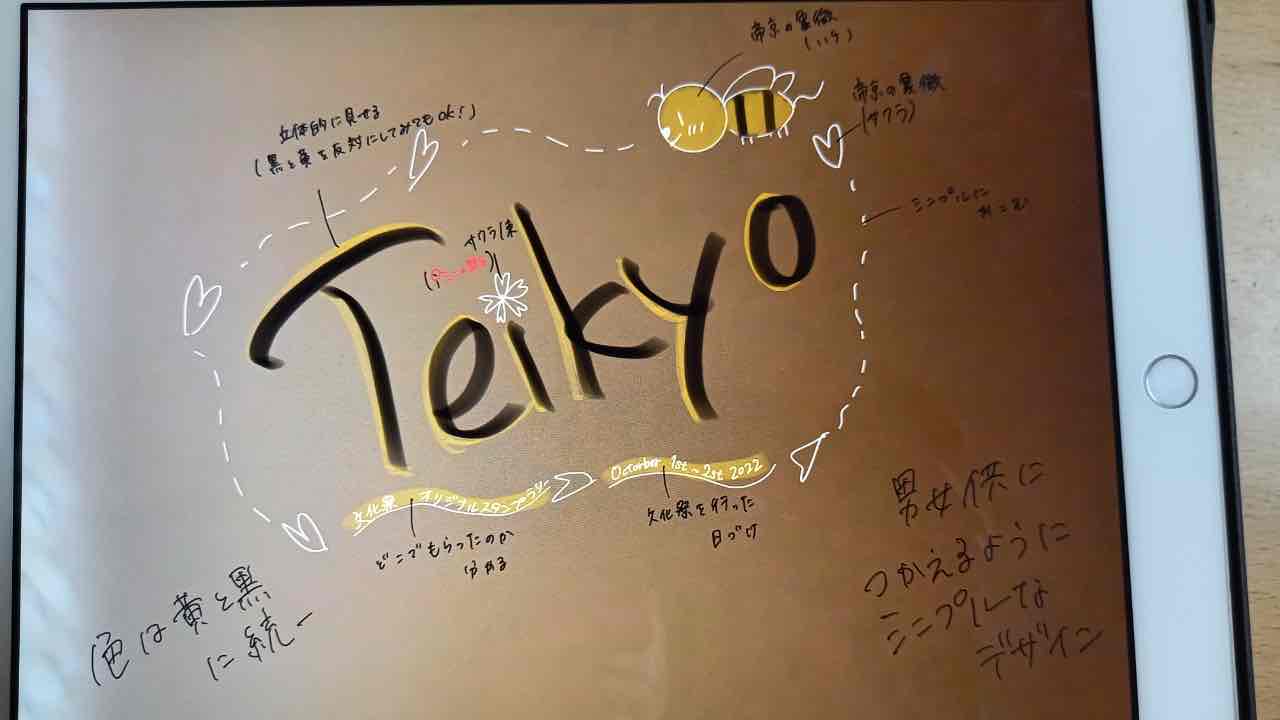 帝京の象徴
(ハチ)
帝京の象徴
(サクラ)
立体的に見せる
(黒と黄を反対にしてみてもOK!)
シンプルに
サクラ
Teikyo
文化祭 オリジナルスタンプラリー
Octorber 1st~2st 2022
どこでもらったのか
分かる
文化祭を行った
日づけ
色は黄と黒
に統一
男女供に
つかえるように
シンプルな
デザイン